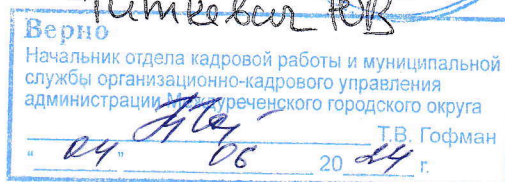 Титкевич ЮВ
Верно
Начальник отдела кадровой работы и муниципальной
службы организационно-кадрового управления
администрации Междуреченского городского округа
Т.В. Гофман
“ 04 ” 06 20 24 г.